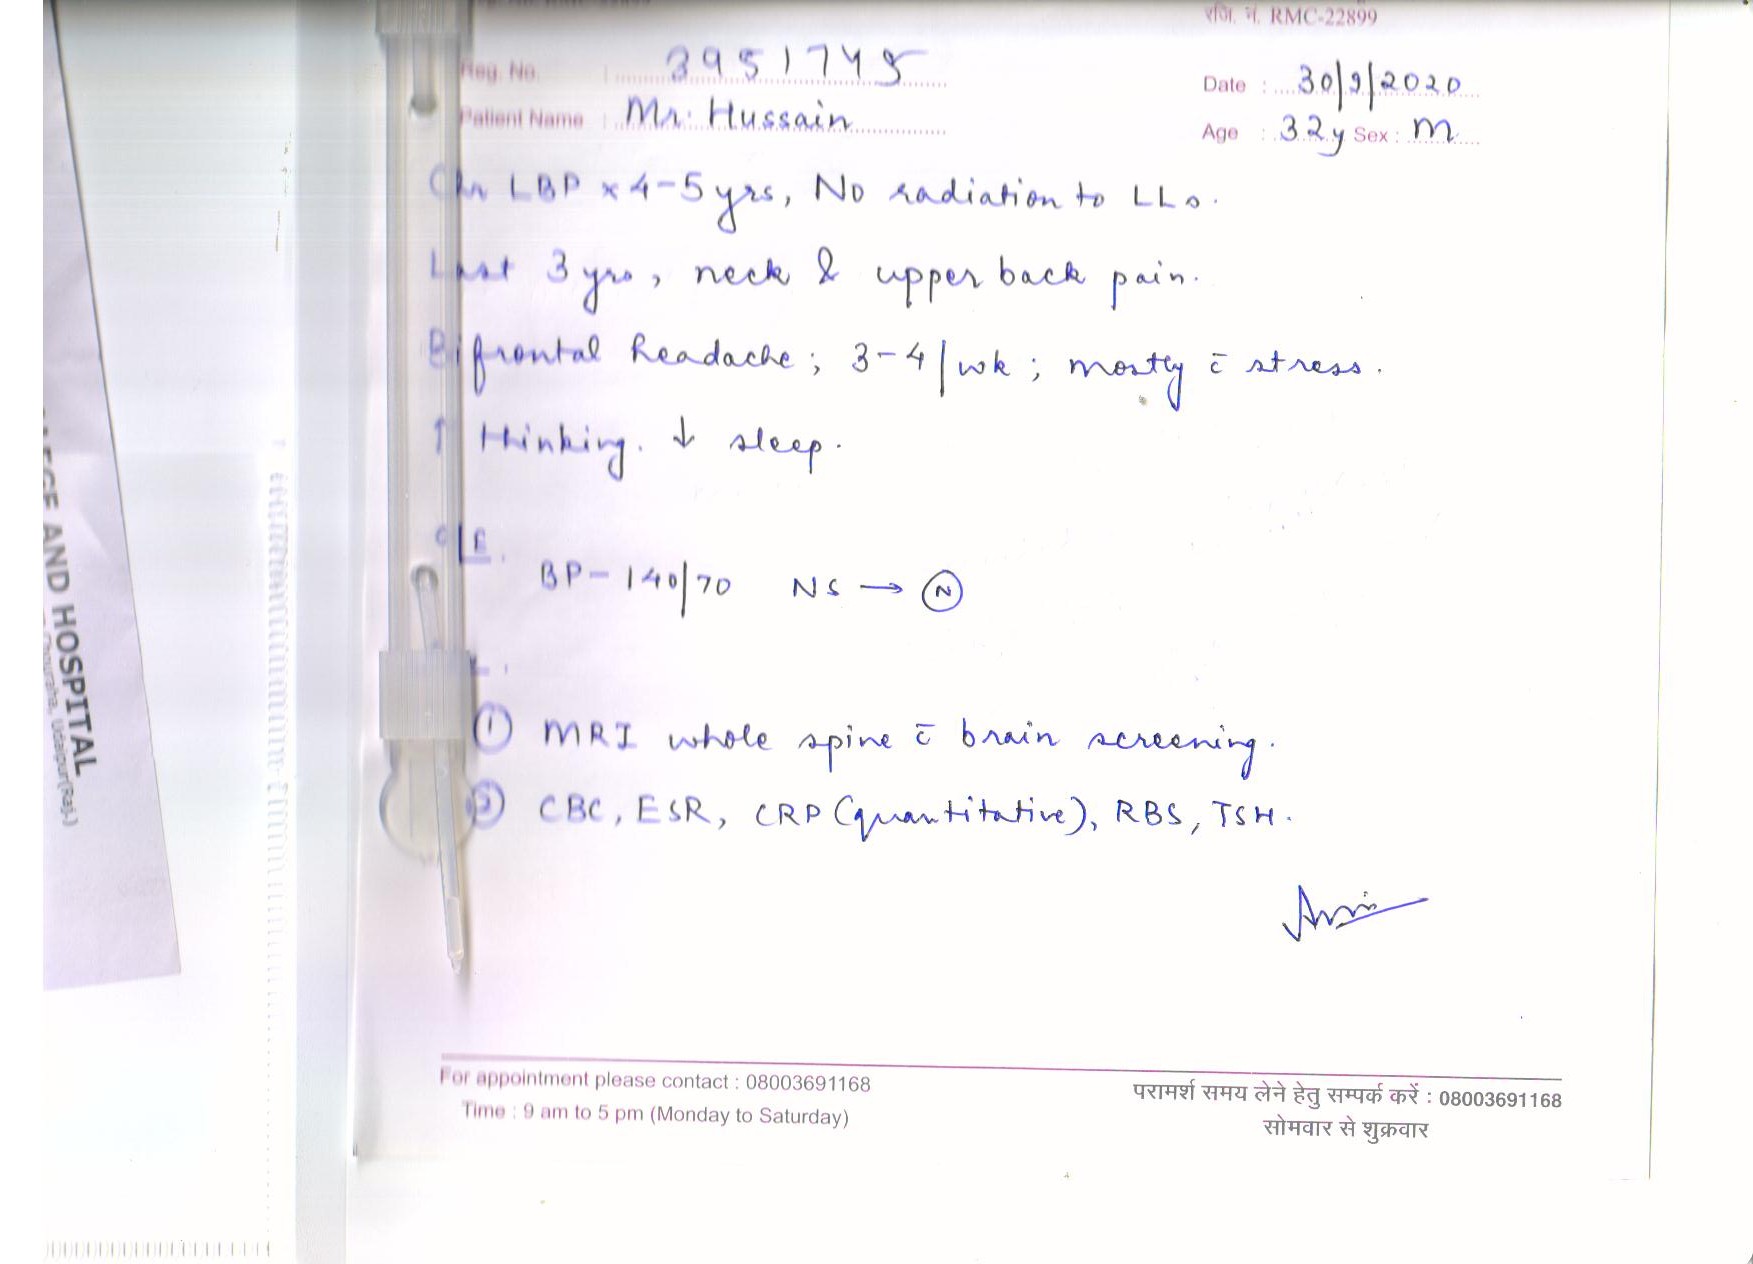 रजि. नं. RMC-22899
Reg. No. : 3951745
Date : 30/9/2020
Patient Name : Mr. Hussain
Age : 32y Sex : M
Chr LBP x 4-5 yrs, No radiation to LLs.
Last 3 yrs, neck & upper back pain.
Bifrontal headache; 3-4/wk; mostly c̄ stress.
↑ thinking. ↓ sleep.
O/E.
BP- 140/70 NS → Ⓝ
① MRI whole spine c̄ brain screening.
② CBC, ESR, CRP (quantitative), RBS, TSH.
For appointment please contact : 08003691168
Time : 9 am to 5 pm (Monday to Saturday)
परामर्श समय लेने हेतु सम्पर्क करें : 08003691168
सोमवार से शुक्रवार
AND HOSPITAL
Udaipur(Raj.)